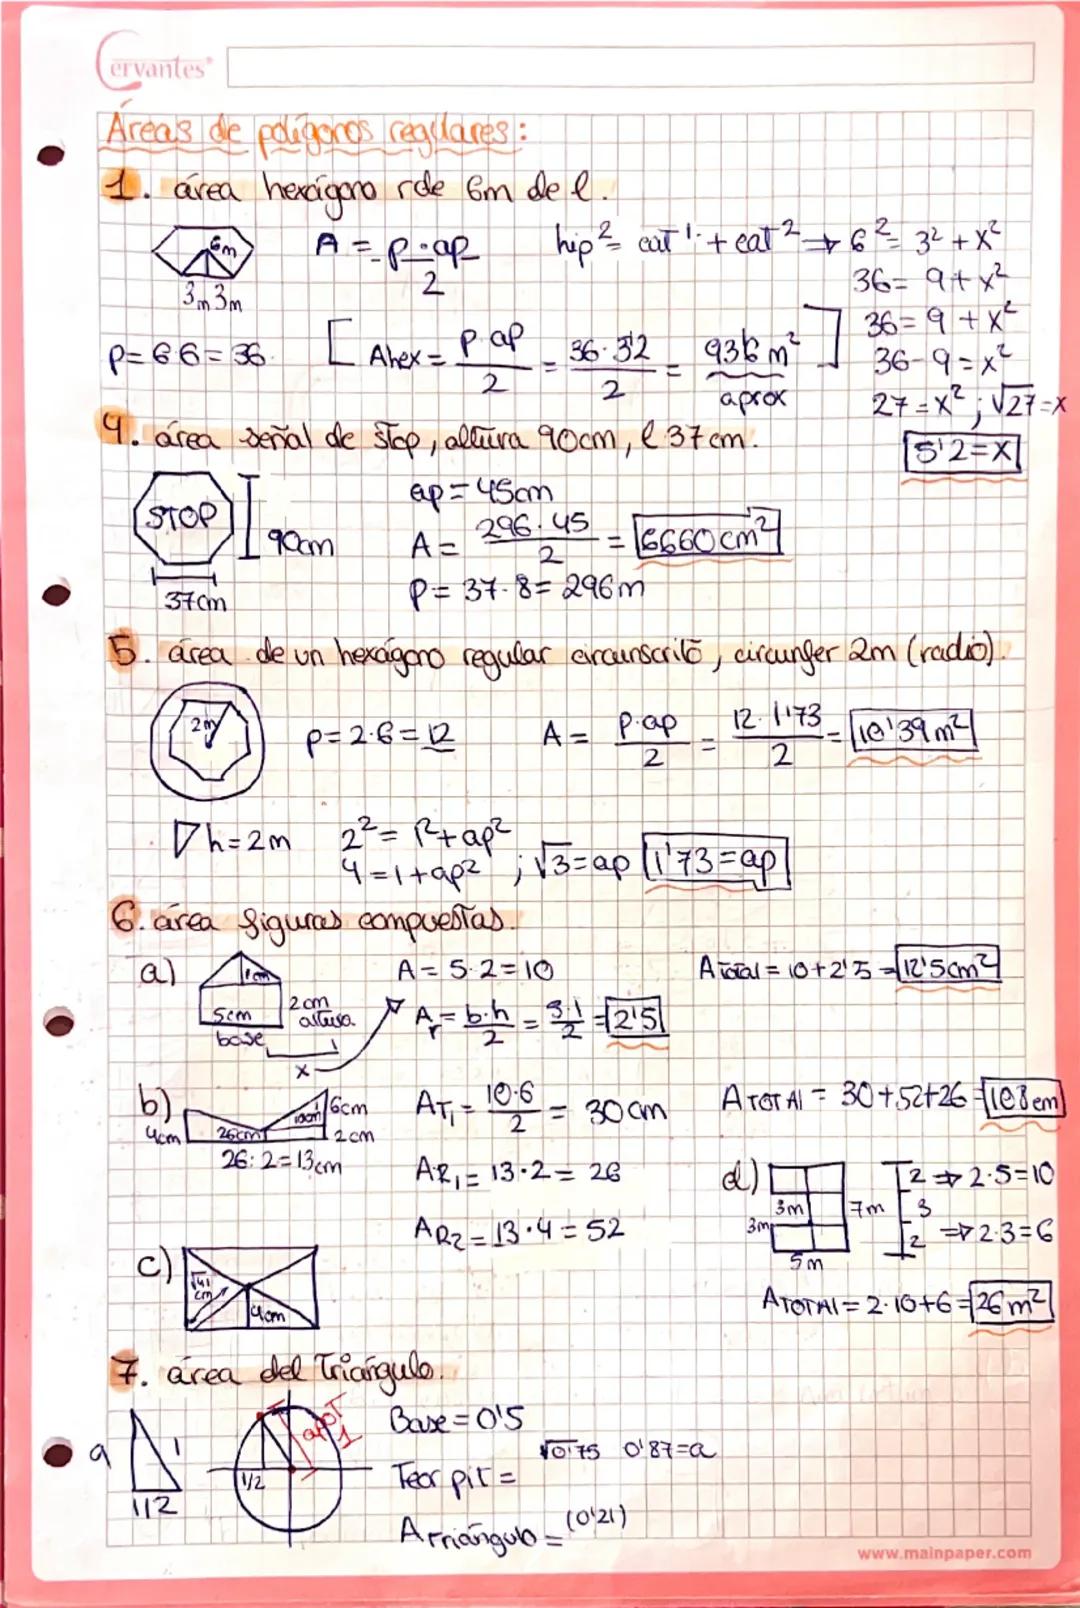 Cervantes
Áreas de polígonos regulares:
1. área hexágono rde 6m de l.
6m
3m 3m
A = p·ap / 2
hip² = cat¹· + cat² → 6² = 3² + x²
36 = 9 + x²
36 = 9 + x²
36 - 9 = x²
27 = x² ; √27 = x
5'2 = x
p = 6 6 = 36
[ Ahex = p·ap / 2 = 36·5'2 / 2 = 93'6 m² ]
aprox
4. área señal de stop, altura 90cm, l 37cm.
STOP
90cm
37cm
ap = 45cm
A = 296·45 / 2 = 6660cm²
p = 37·8 = 296m
5. área de un hexágono regular circunscrito, circunfer 2m (radio).
2m
p = 2·6 = 12
A = p·ap / 2 = 12·1'73 / 2 = 10'39 m²
h = 2m
2² = 1² + ap²
4 = 1 + ap² ; √3 = ap 1'73 = ap
6. área figuras compuestas.
a)
1cm
5cm
base
2cm
altura
x
A = 5·2 = 10
A_T = b·h / 2 = 5·1 / 2 = 2'5
A total = 10 + 2'5 = 12'5cm²
b)
4cm
26cm
10cm
6cm
2cm
26:2 = 13cm
AT₁ = 10·6 / 2 = 30cm
AR₁ = 13·2 = 26
AR₂ = 13·4 = 52
A TOTAl = 30 + 52 + 26 = 108cm
c)
√41
cm
4cm
d)
3m
3m
7m
5m
2 ⇒ 2·5 = 10
3
2 ⇒ 2·3 = 6
A TOTAl = 2·10 + 6 = 26 m²
7. área del Triángulo.
a
1
1/2
1/2
apot
1
Base = 0'5
Teor pit =
√0'75 0'87 = a
A Triángulo = (0'21)
www.mainpaper.com